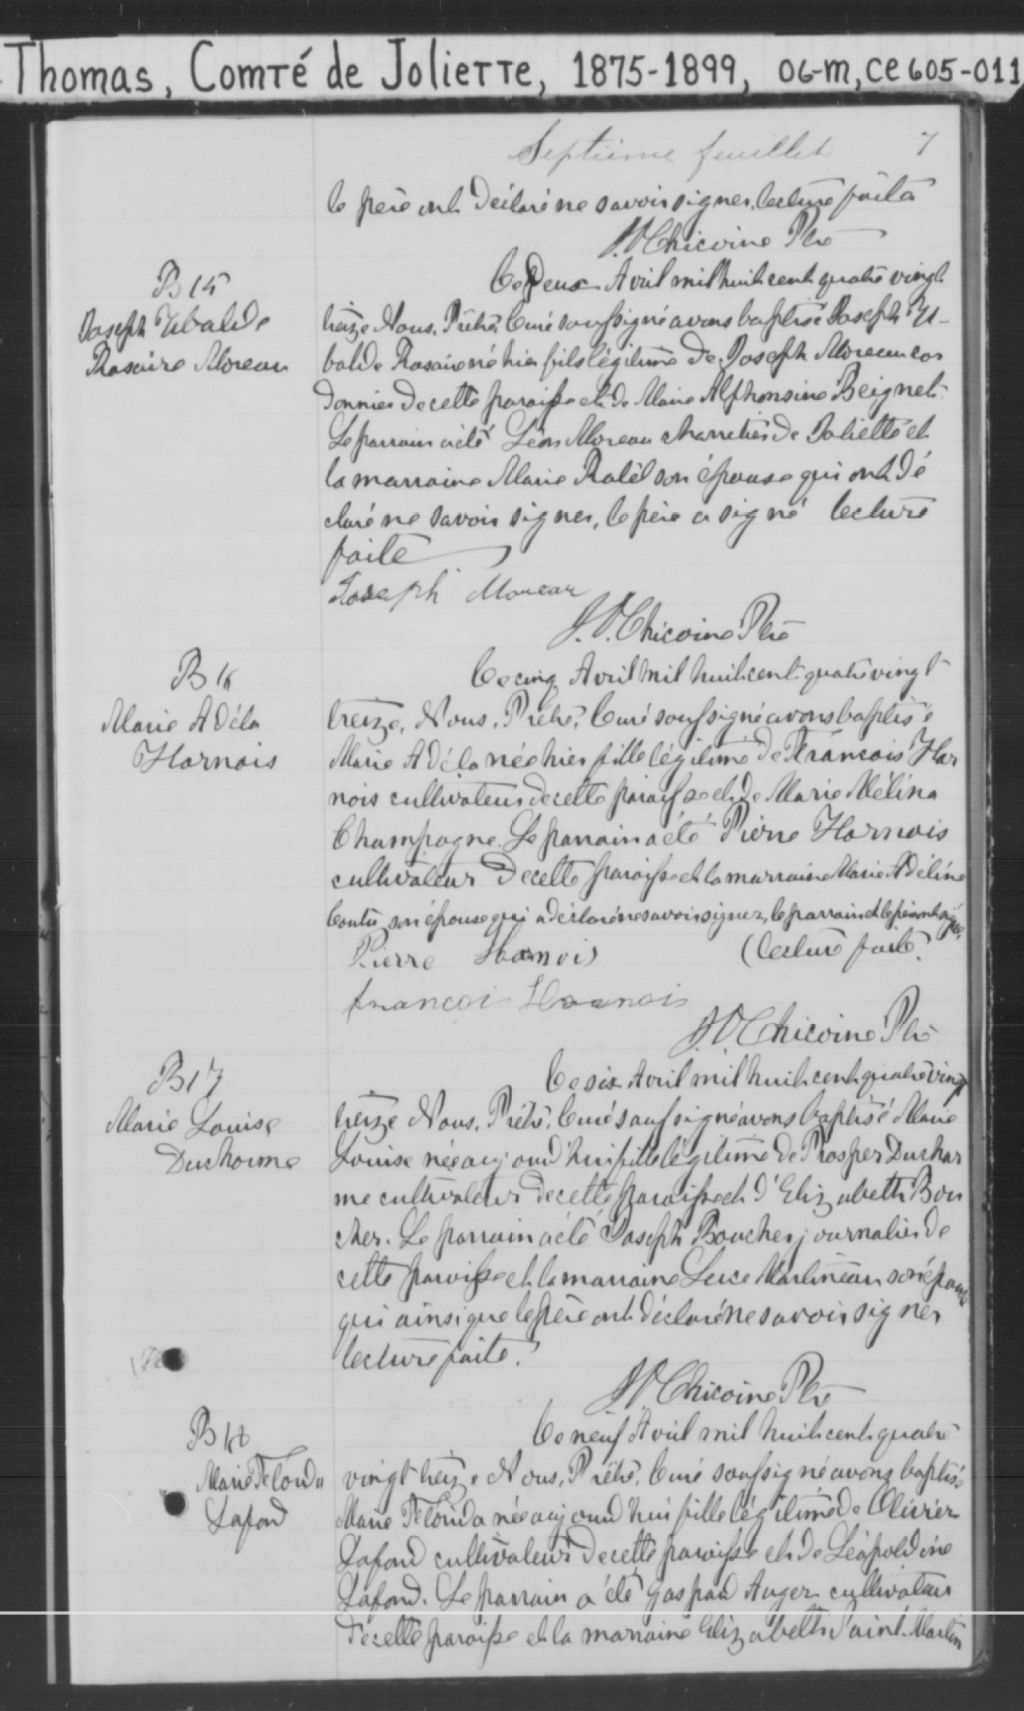 Thomas, Comté de Joliette, 1875-1899, 06-M, CE605-011
Septième feuillet 7
le père ont déclaré ne savoir signer, lecture faite
J.O. Chicoine Ptre
B 15
Joseph Ubalde
Rosaire Moreau
Ce deux Avril mil huit cent quatre vingt
treize Nous, Prêtre, Curé soussigné avons baptisé Joseph U-
balde Rosaire né hier fils légitime de Joseph Moreau cor
donnier de cette paroisse et de Marie Alphonsine Beignet.
Le parrain a été Léon Moreau charretier de Joliette et
la marraine Marie son épouse qui ont dé
claré ne savoir signer, le père a signé lecture
faite
Joseph Moreau
J.O. Chicoine Ptre
B 16
Marie Adéla
Harnois
Ce cinq Avril mil huit cent quatre vingt
treize, Nous, Prêtre, Curé soussigné avons baptisé
Marie Adéla née hier fille légitime de Francois Har
nois cultivateur de cette paroisse et de Marie Mélina
Champagne. Le parrain a été Pierre Harnois
cultivateur de cette paroisse et la marraine Marie Adéline
Coutu son épouse qui a déclaré ne savoir signer, le parrain et le père ont signé.
Pierre Harnois (lecture faite.
francoi Harnois
J.O. Chicoine Ptre
B 17
Marie Louise
Ducharme
Ce six Avril mil huit cent quatre vingt
treize Nous, Prêtre, Curé soussigné avons baptisé Marie
Louise née aujourd'hui fille légitime de Prosper Duchar
me cultivateur de cette paroisse et d'Elizabeth Bou
cher. Le parrain a été Joseph Boucher journalier de
cette paroisse et la marraine Luce Martineau son épouse
qui ainsi que le père ont déclaré ne savoir signer
lecture faite.
J.O. Chicoine Ptre
B 18
Marie
Lafond
Ce neuf Avril mil huit cent quatre
vingt treize Nous, Prêtre, Curé soussigné avons baptisé
Marie née aujourd'hui fille légitime de Olivier
Lafond cultivateur de cette paroisse et de Léopoldine
Lafond. Le parrain a été Gaspard Auger cultivateur
de cette paroisse et la marraine Elizabeth Saint. Martin